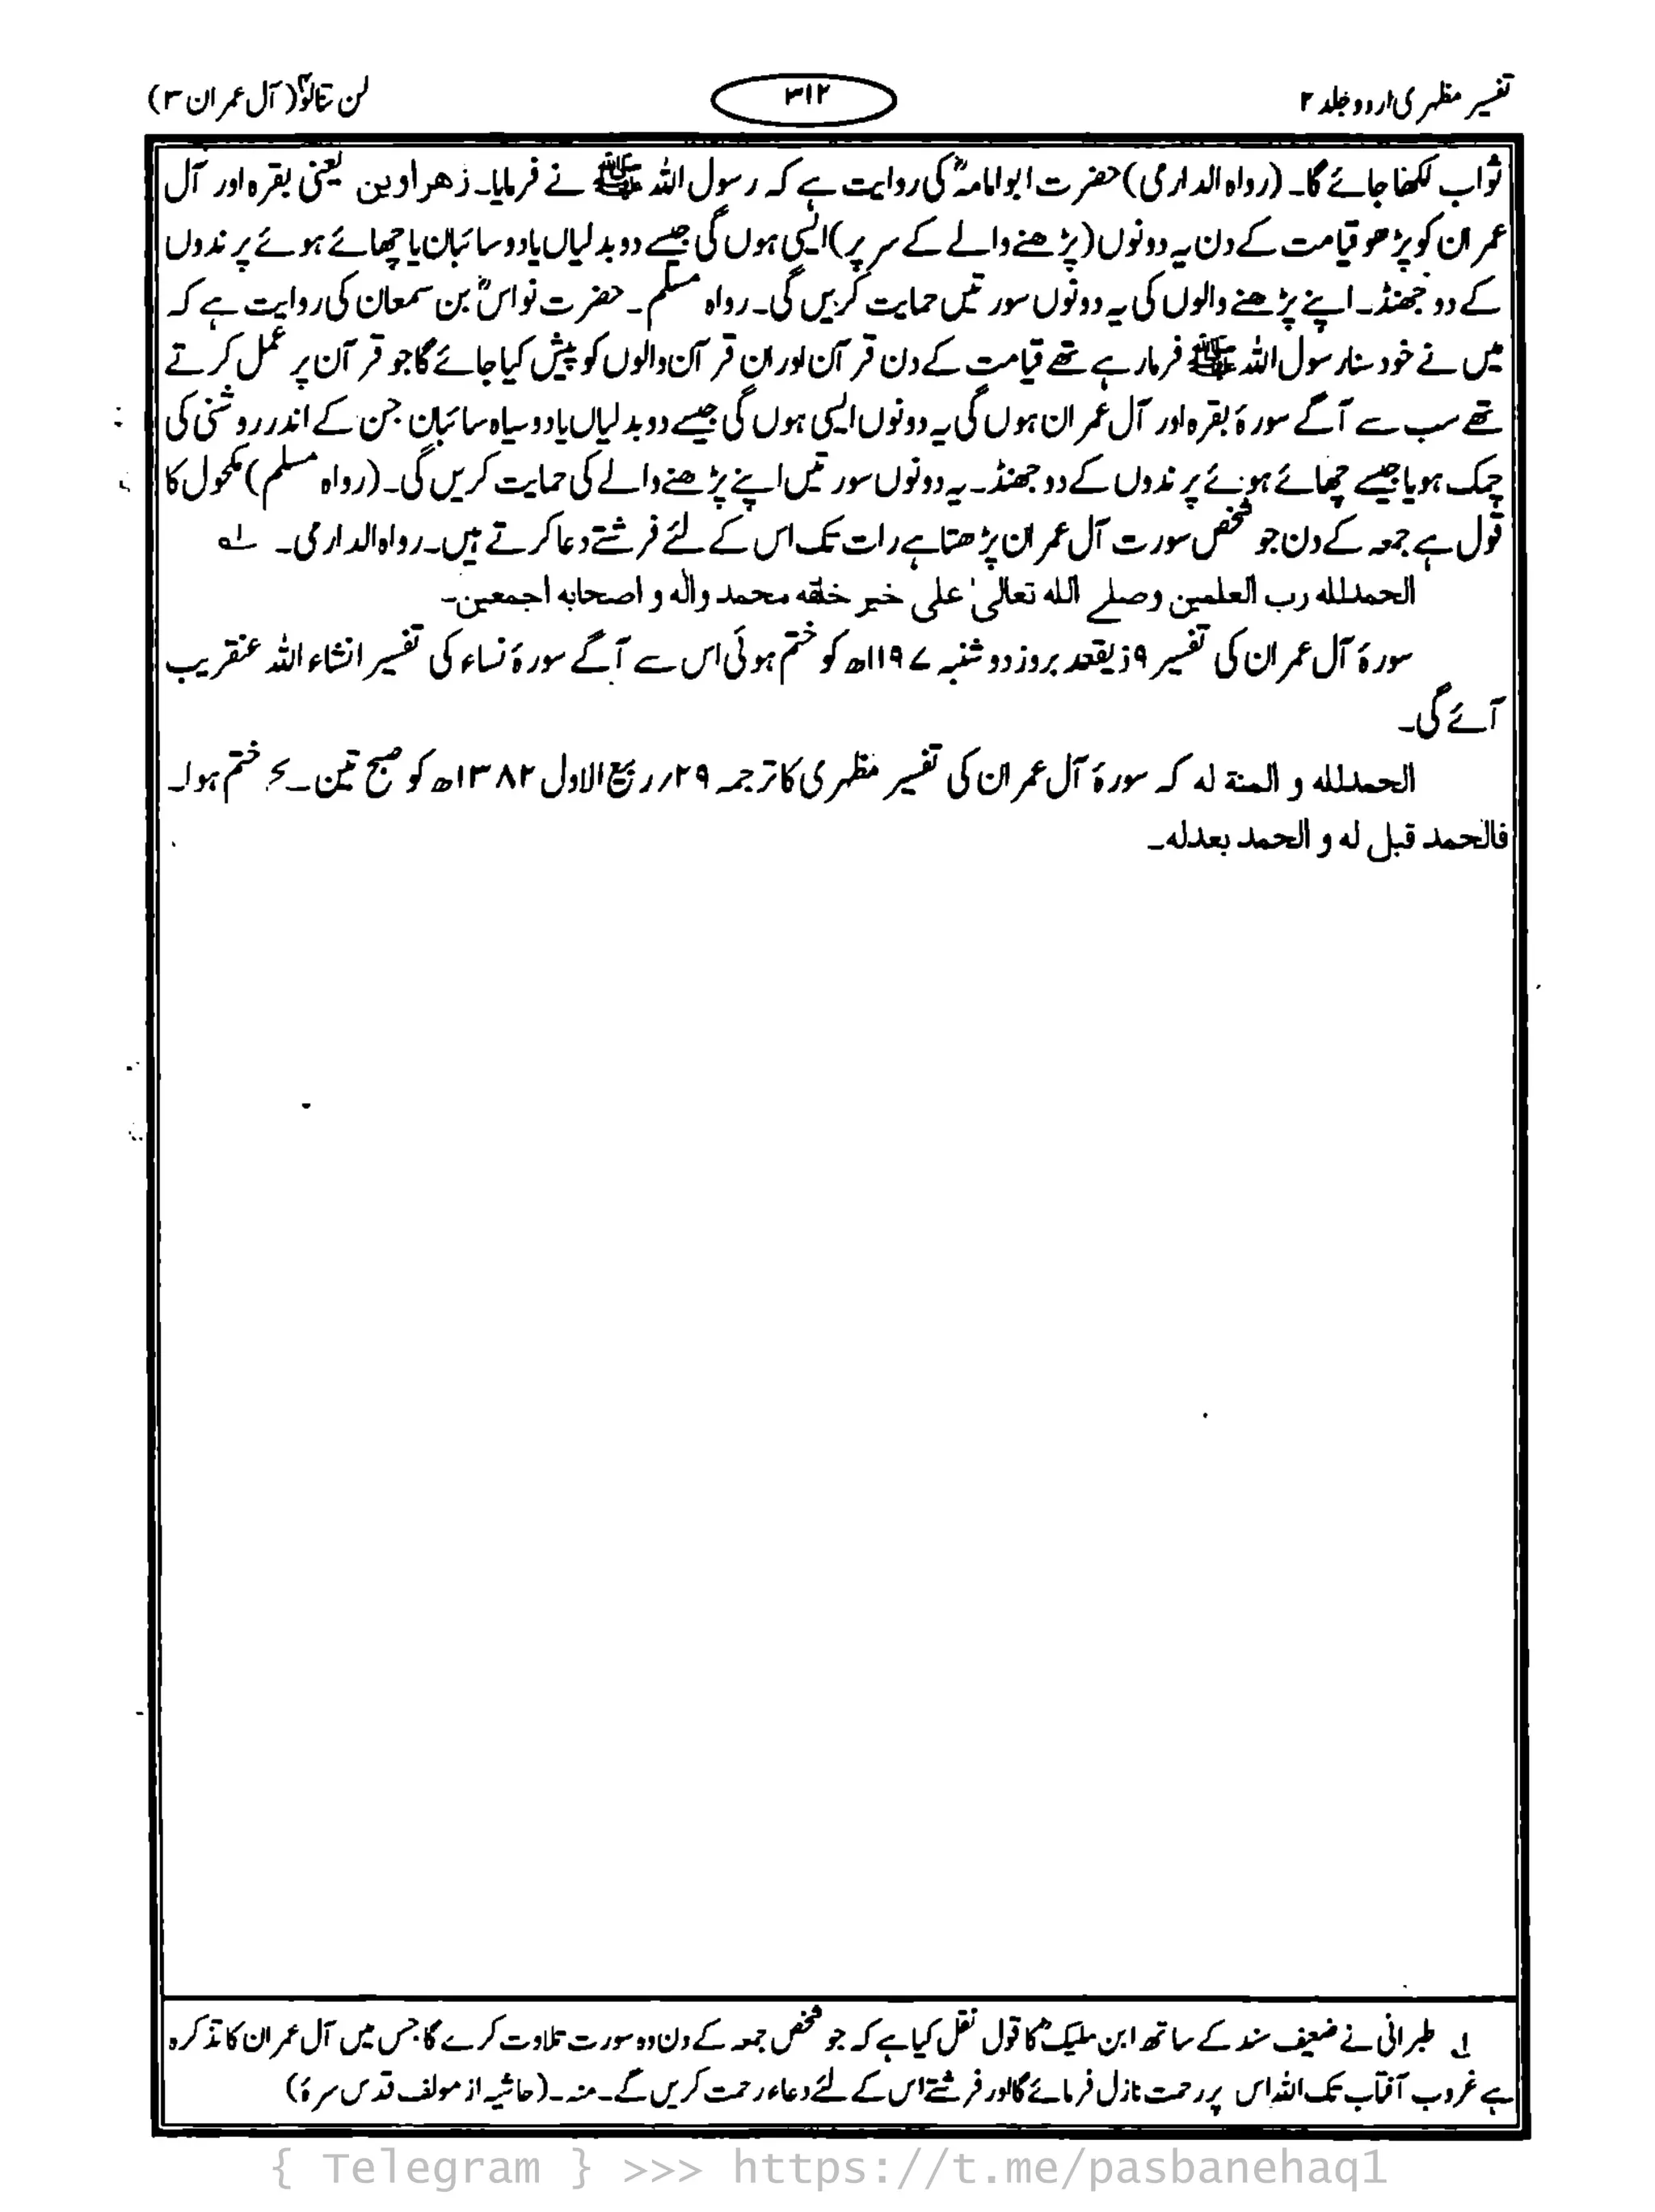 تفسیر مظہری اردو جلد ۲
۳۱۲
لن تنالوا (آل عمران ۳)
ثواب لکھا جائے گا۔ (رواہ الداری) حضرت ابوامامہؓ کی روایت ہے کہ رسول اللہ ﷺ نے فرمایا۔ زھراوین یعنی بقرہ اور آل
عمران کو پڑھو قیامت کے دن یہ دونوں (پڑھنے والے کے سر پر) ایسی ہوں گی جیسے دو بدلیاں یا دو سائبان یا چھائے ہوئے پرندوں
کے دو جھنڈ۔ اپنے پڑھنے والوں کی یہ دونوں سورتیں حمایت کریں گی۔ رواہ مسلم۔ حضرت نواسؓ بن سمعان کی روایت ہے کہ
میں نے خود سنا رسول اللہ ﷺ فرما رہے تھے قیامت کے دن قرآن اور ان قرآن والوں کو پیش کیا جائے گا جو قرآن پر عمل کرتے
تھے سب سے آگے سورۂ بقرہ اور آل عمران ہوں گی یہ دونوں ایسی ہوں گی جیسے دو بدلیاں یا دو سیاہ سائبان جن کے اندر روشنی کی
چمک ہو یا جیسے چھائے ہوئے پرندوں کے دو جھنڈ۔ یہ دونوں سورتیں اپنے پڑھنے والے کی حمایت کریں گی۔ (رواہ مسلم) مکحول کا
قول ہے جمعہ کے دن جو شخص سورت آل عمران پڑھتا ہے رات تک اس کے لئے فرشتے دعا کرتے ہیں۔ رواہ الدارمی۔ لہ
الحمدللہ رب العلمین وصلے اللہ تعالیٰ علی خیر خلقه محمد واٰله و اصحابه اجمعین۔
سورۂ آل عمران کی تفسیر ۹ ذیقعد بروز دو شنبہ ۱۱۹۷ھ کو ختم ہوئی اس سے آگے سورۂ نساء کی تفسیر انشاء اللہ عنقریب
آئے گی۔
الحمدللہ و المنة له کہ سورۂ آل عمران کی تفسیر مظہری کا ترجمہ ۲۹؍ ربیع الاول ۱۳۸۲ھ کو صبح تین ختم ہوا۔
فالحمد قبل له و الحمد بعدله۔
لہ طبرانی نے ضعیف سند کے ساتھ ابن کا قول نقل کیا ہے کہ جو شخص جمعہ کے دن وہ سورت تلاوت کرے گا جس میں آل عمران کا تذکرہ
ہے غروب آفتاب تک اللہ اس پر رحمت نازل فرمائے گا اور فرشتے اس کے لئے دعاء رحمت کریں گے۔ منہ۔ (حاشیہ از مولف قدس سرہٗ)
{ Telegram } >>> https://t.me/pasbanehaq1